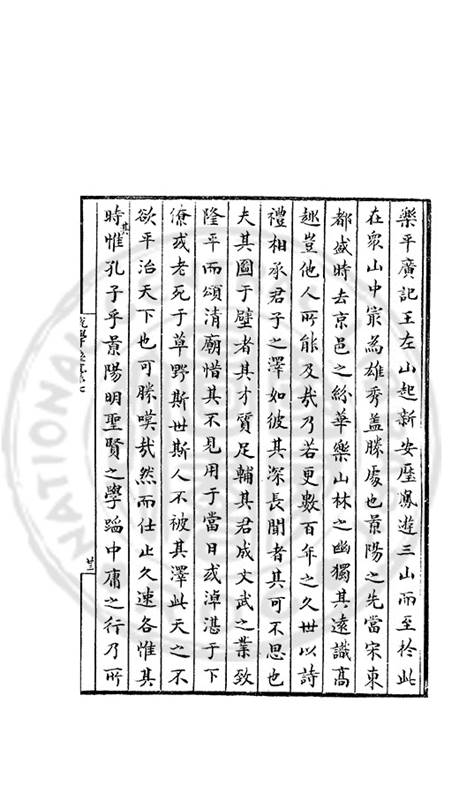 樂平廣記王左山起新安歷鳳遊三山而至於此
在衆山中寂為雄秀蓋勝處也景陽之先當宋東
都盛時去京邑之紛華樂山林之幽獨其遠識高
趣豈他人所能及哉乃若更數百年之久世以詩
禮相承君子之澤如彼其深長聞者其可不思也
夫其圖于壁者其才質足輔其君成文武之業致
隆平而頌清廟惜其不見用于當日或淖湛于下
僚或老死于草野斯世斯人不被其澤此天之不
欲平治天下也可勝嘆哉然而仕止久速各惟其
時其惟孔子乎景陽明聖賢之學蹈中庸之行乃所
廿三
NATIONAL